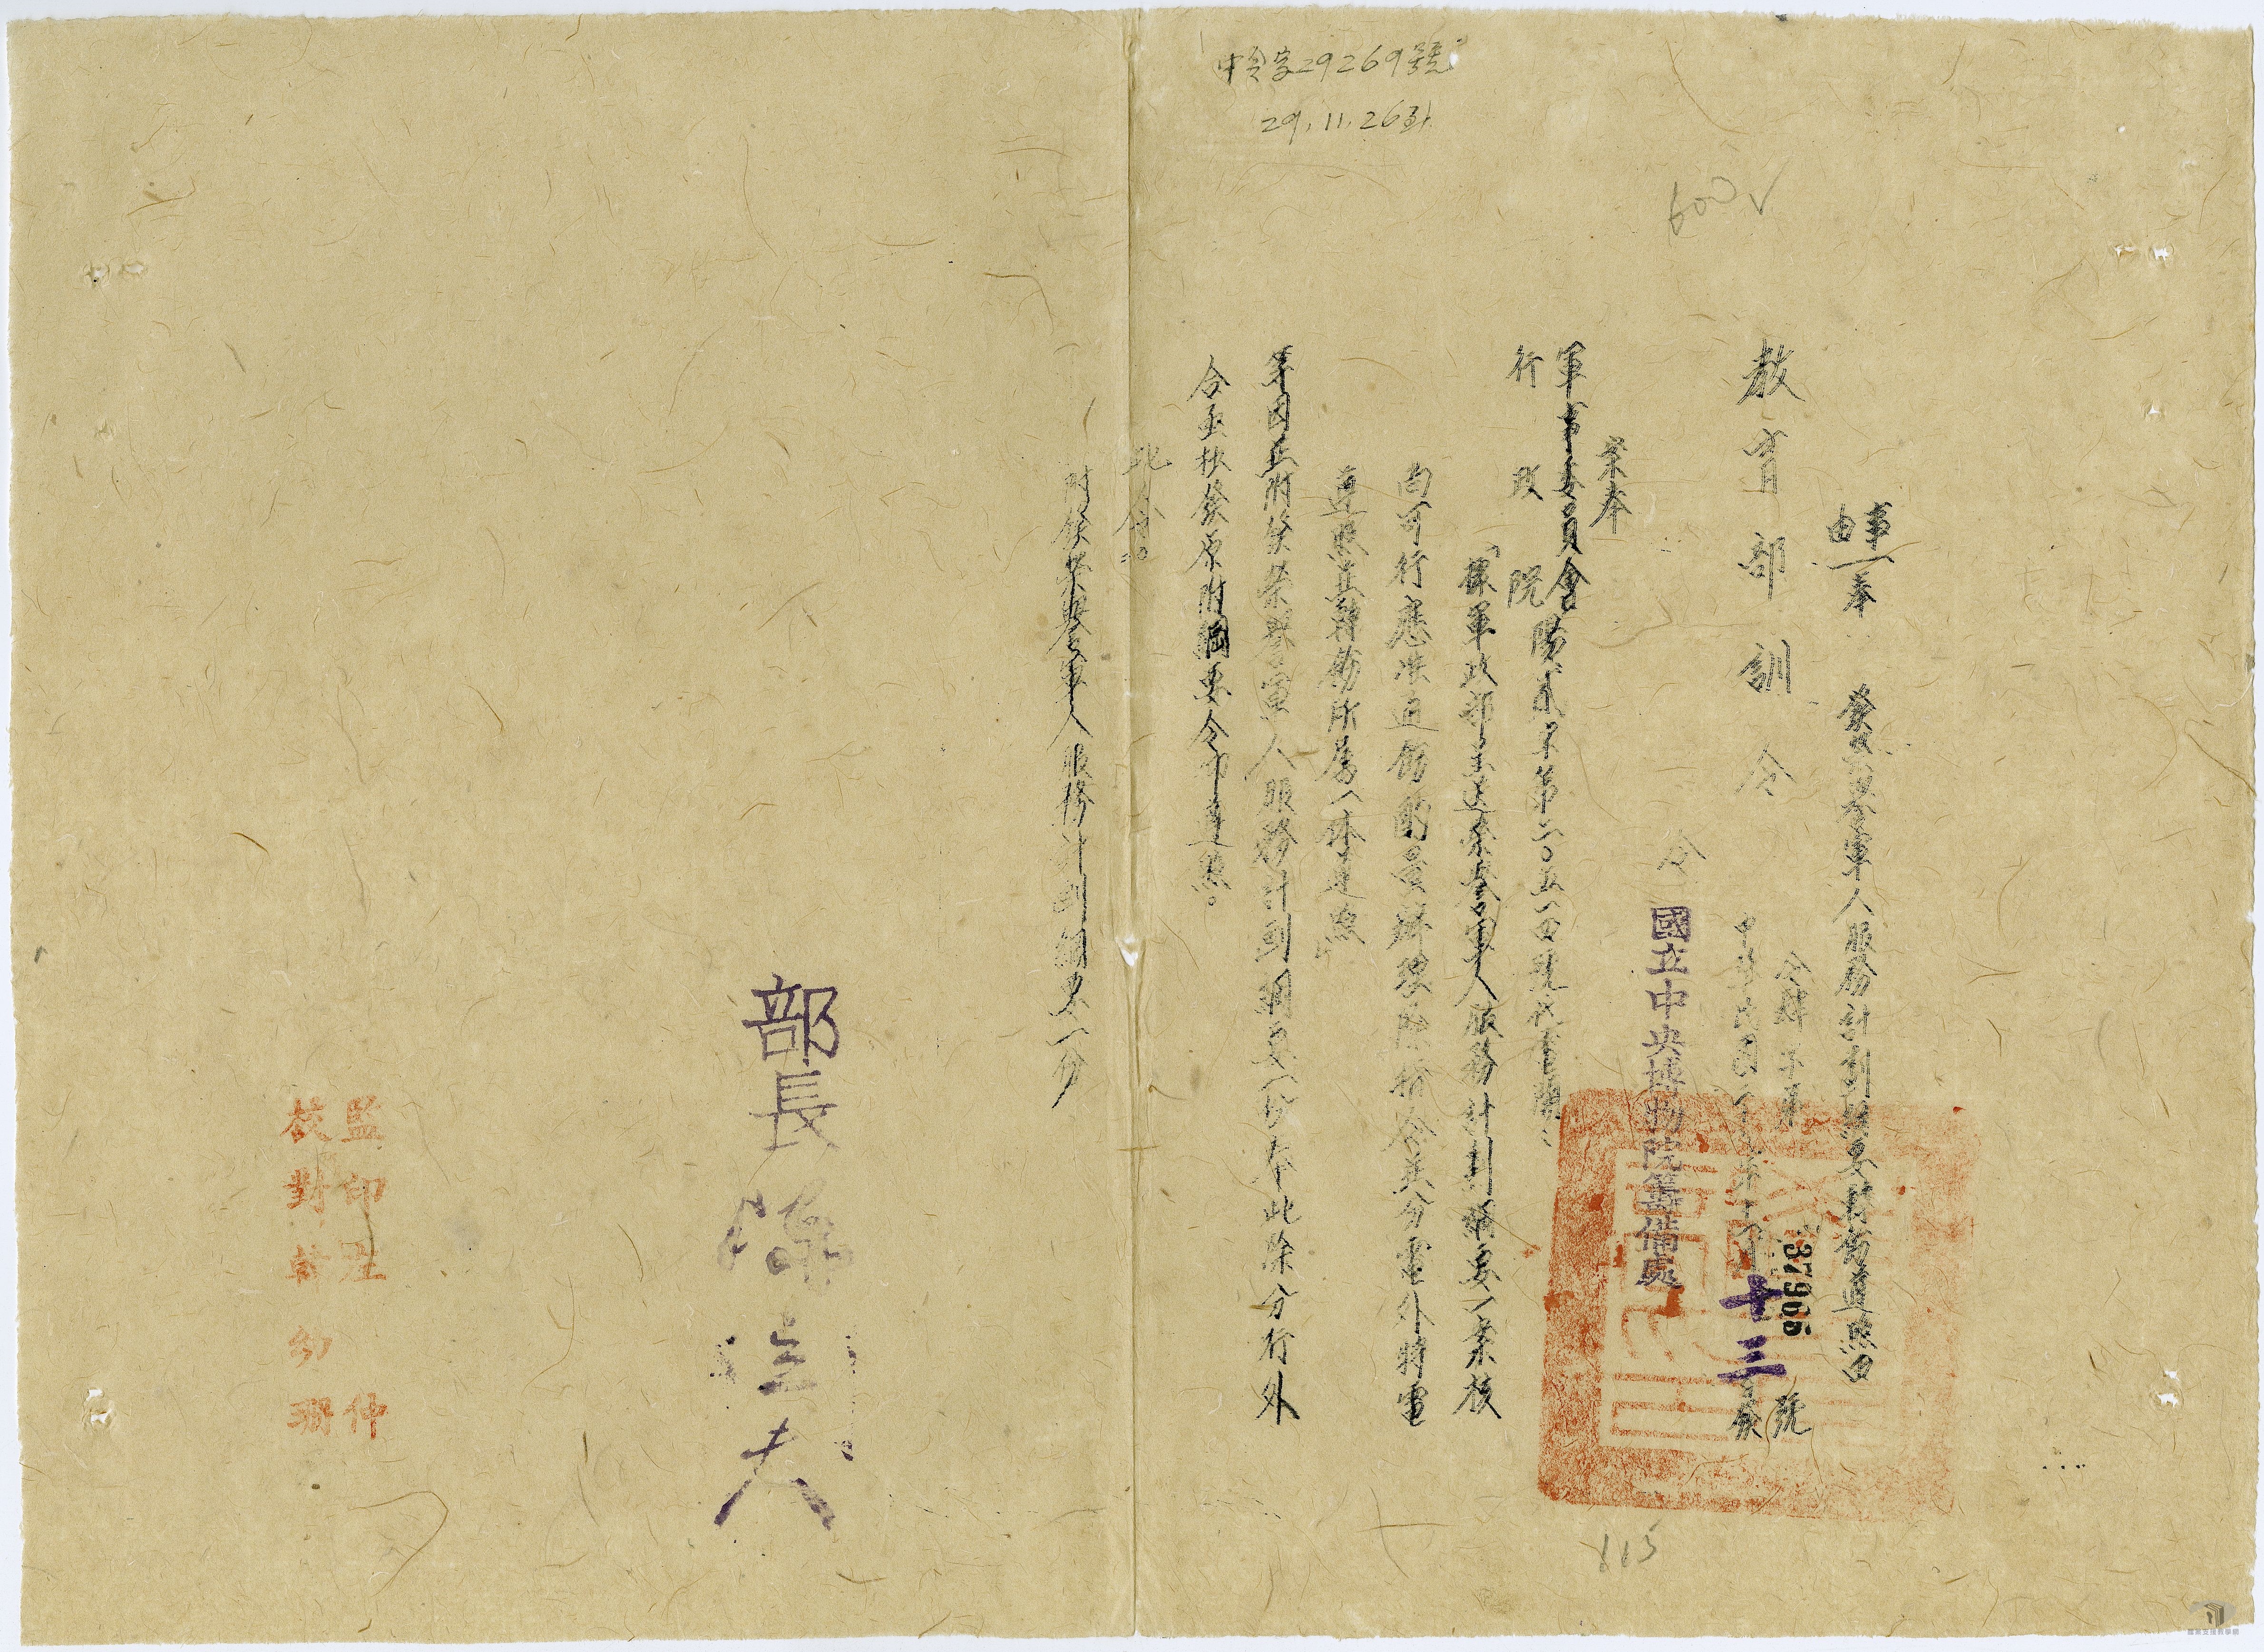 29269號
29.11.26
600√
事
由
奉
發榮譽軍人服務計劃綱要轉飭遵照由
教育部訓令
37965
號
中華民國二十九年十一月十三日發
令 國立中央博物院籌備處
案奉
軍事委員會
行政院
「據軍政部呈送榮譽軍人服務計劃綱要一案核
尚可行應准通飭酌量辦理除指令并分電外特電
遵照並轉飭所屬一体遵照
等因並附發榮譽軍人服務計劃綱要一份奉此除分行外
合亟抄發原附綱要令仰遵照。
此令。
附發榮譽軍人服務計劃綱要一份
部長 陳立夫
監印
校對
115